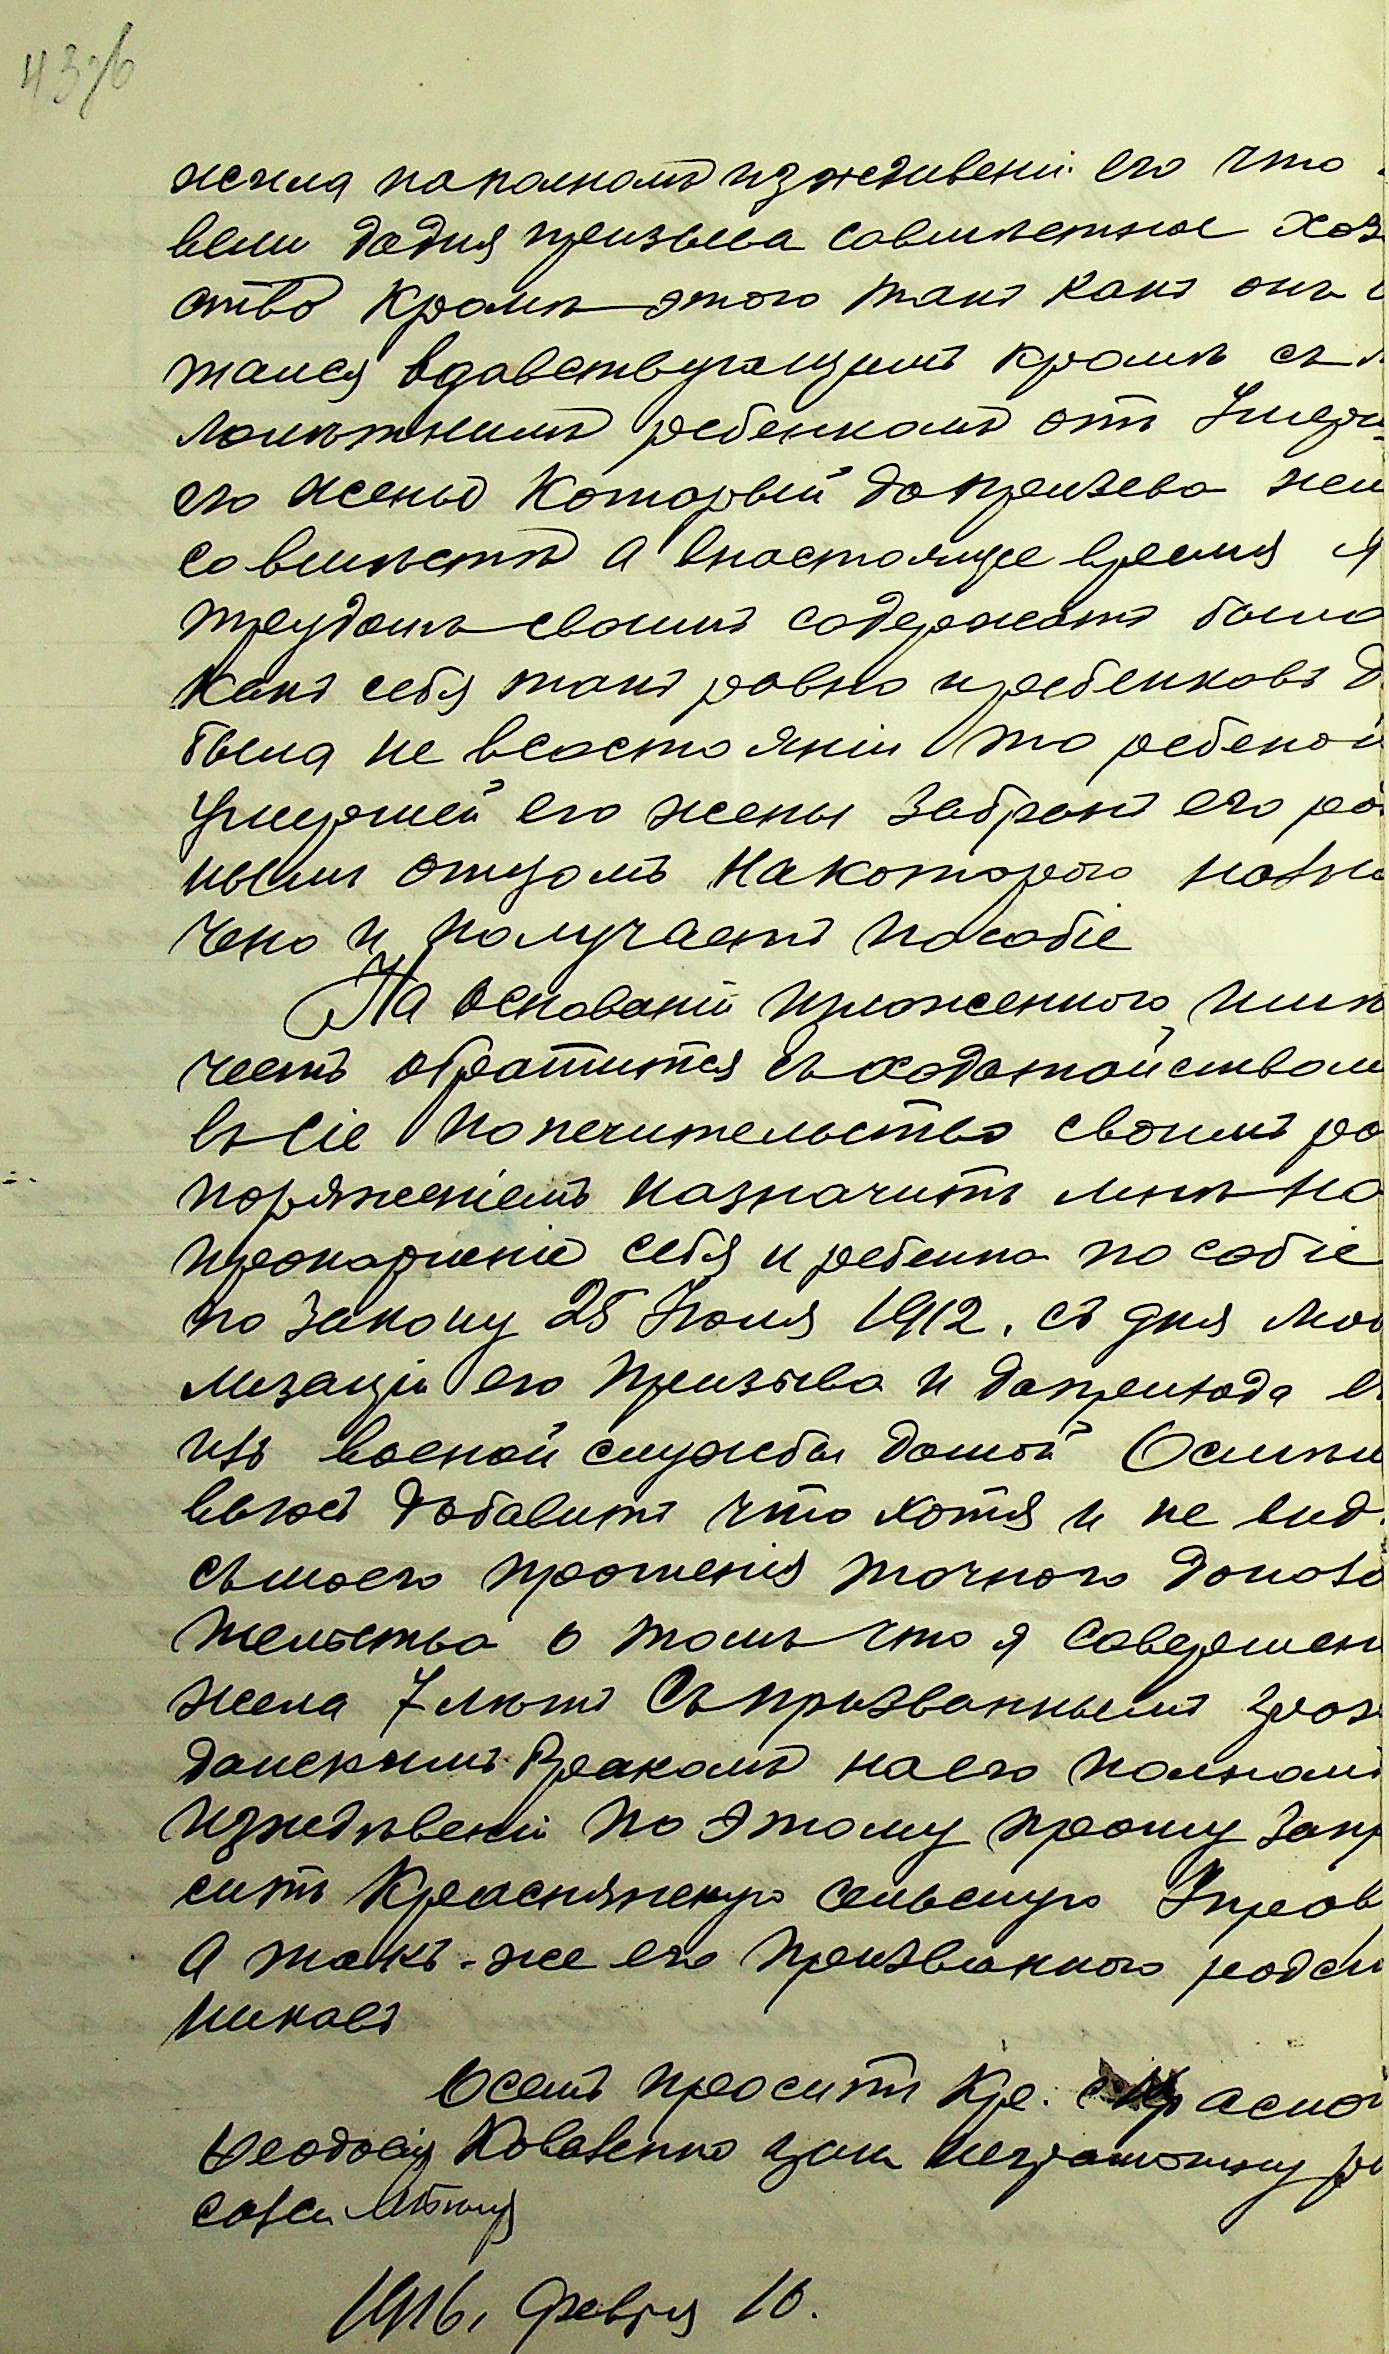 43об
жила наполномъ изжедивени его что
вели додня призыва совмѣстное хоз
ство Кромѣ этого такъ какъ онъ
тался вдовствующимъ кромѣ съ
лолѣтнимъ ребенкомъ отъ Умерш
его жены Который допризева жил
совмѣстѣ а внастоящее время я
трудомъ своимъ содержать была
какъ себя такъ ровно иребенковъ
была не всостоянiи то ребенок
умершей его жены забранъ его ро
нымъ отцомъ Накоторого назна
чено и получаетъ пособiе
На основанiи изложенного имѣ
честь обратится съ ходатайством
въ сiе попечительство своимъ ра
поряженiемъ назначить мнѣ на
прокормленiе себя и ребенка пособiе
по закону 25 Iюля 1912. съ дня моб
лизацiи его призыва и доприхода е
изъ военой службы домой Осмели
ваюсь добавить что хотя и не вид
сьмоего прошенiя точного доказа
тельства о томъ что я совершен
жела 7 лѣтъ Съ призваннымъ граж
данскимъ Бракомъ наего полномъ
изжедивенiи по этому прошу запр
сить Краснянскую сельскую Управ
А такъ-же его призванного родст
никовъ
Осемъ проситъ Кре. с. Красно
Феодосiя Коваленко азаи неграмотну ра
1916, Февраля 10.